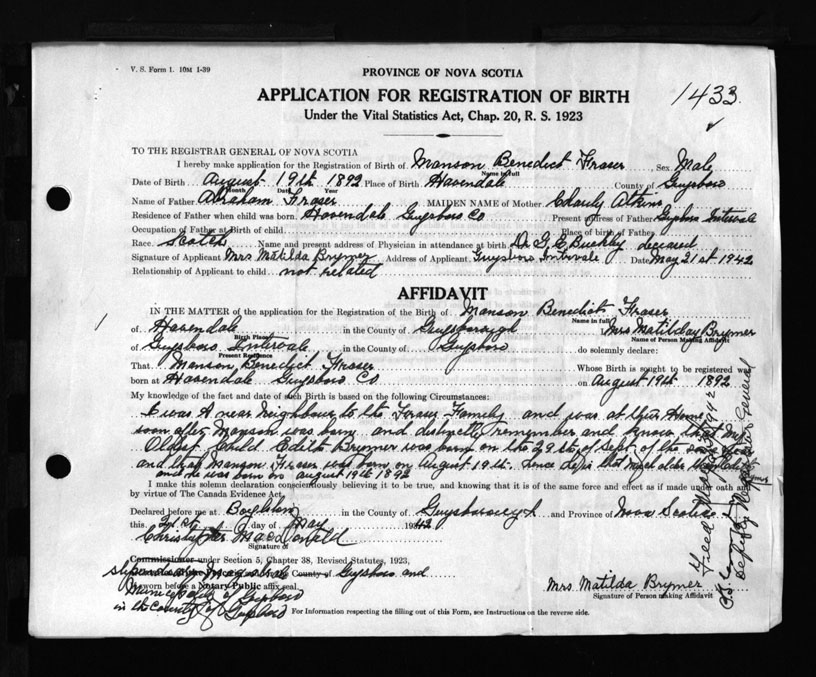 V. S. Form 1. 10M 1-39
PROVINCE OF NOVA SCOTIA
1433
APPLICATION FOR REGISTRATION OF BIRTH
Under the Vital Statistics Act, Chap. 20, R. S. 1923
TO THE REGISTRAR GENERAL OF NOVA SCOTIA
I hereby make application for the Registration of Birth of Manson Benedict Fraser Sex Male
Name in full
Date of Birth August 19th 1892 Place of Birth Havendale County of Guysboro
Month Date Year
Name of Father Abraham Fraser MAIDEN NAME of Mother Atkins
Residence of Father when child was born Havendale Guysboro Co Present address of Father Guysboro Intervale
Occupation of Father at Birth of child Place of birth of Father
Race Scotch Name and present address of Physician in attendance at birth Dr G. E. Buckley deceased
Signature of Applicant Mrs Matilda Brymer Address of Applicant Guysboro Intervale Date May 21st 1942
Relationship of Applicant to child not related
AFFIDAVIT
IN THE MATTER of the application for the Registration of the Birth of Manson Benedict Fraser
Name in full
of Havendale in the County of Guysborough Mrs Matilda Brymer
Birth Place
Name of Person Making Affidavit
of Guysboro Intervale in the County of Guysboro do solemnly declare:
Present Residence
That Manson Benedict Fraser Whose Birth is sought to be registered was
born at Havendale Guysboro Co on August 19th 1892
My knowledge of the fact and date of such Birth is based on the following Circumstances:
I was A near Neighbour to the Fraser Family and was at their Home
soon after Manson was born and distinctly remember and know that my
Oldest Child Edith Brymer was born on the 29th of Sept of the same year
and that Manson Fraser was born on August 19th. 
and he was born on august 19th 1892
I make this solemn declaration conscientiously believing it to be true, and knowing that it is of the same force and effect as if made under oath and
by virtue of The Canada Evidence Act.
Declared before me at Boylston in the County of Guysborough and Province of Nova Scotia
this 21st day of May 1942
Christopher MacDonald
Signature of
Commissioner under Section 5, Chapter 38, Revised Statutes, 1923,
stipendiary Magistrate County of Guysboro and
Or sworn before a Notary Public affix seal
Municipality of Guysboro
in the County of Guysboro
Mrs Matilda Brymer
Signature of Person making Affidavit
For Information respecting the filling out of this Form, see Instructions on the reverse side.
Filed 1942
Deputy Registrar General